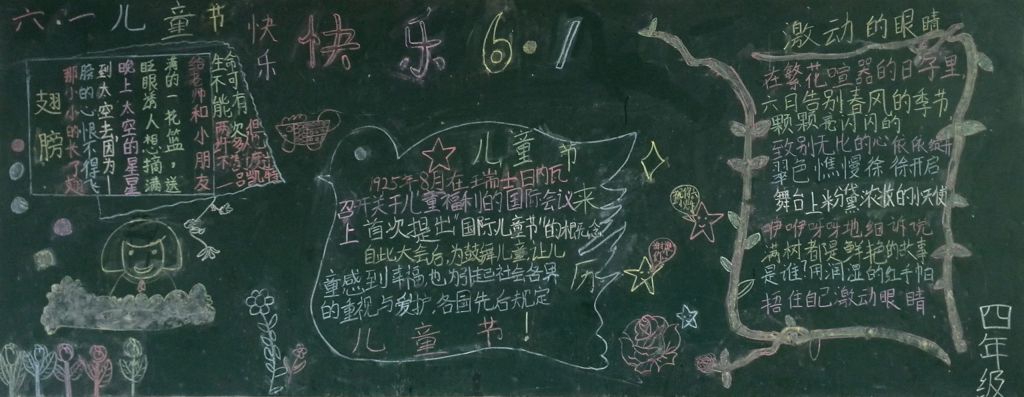 六·一儿童节
快乐
快乐6·1
翅膀
那小小的长了翅
膀的心恨不得飞
到太空去因为
晚上太空的星星
眨眼诱人想摘满
满的一花篮，送
给老师和小朋友
生命可有次
不能两
儿童节
来历
1925年8月在瑞士日内瓦
召开关于儿童福利的国际会议
上首次提出“国际儿童节”的概念
自此大会后，为鼓舞儿童，让儿
童感到幸福，也为引起社会各界
的重视与爱护，各国先后规定
儿童节！
激动的眼睛
在繁花喧嚣的日子里
六月告别春风的季节
颗颗亮闪闪的
致别无比的慢依依
翠色憔慢徐徐开启
舞台上米分黛浓妆的小天使
咿咿呀呀地细诉说
满树都是鲜艳的故事
是谁！用润湿的红手帕
捂住自己激动眼睛
四年级